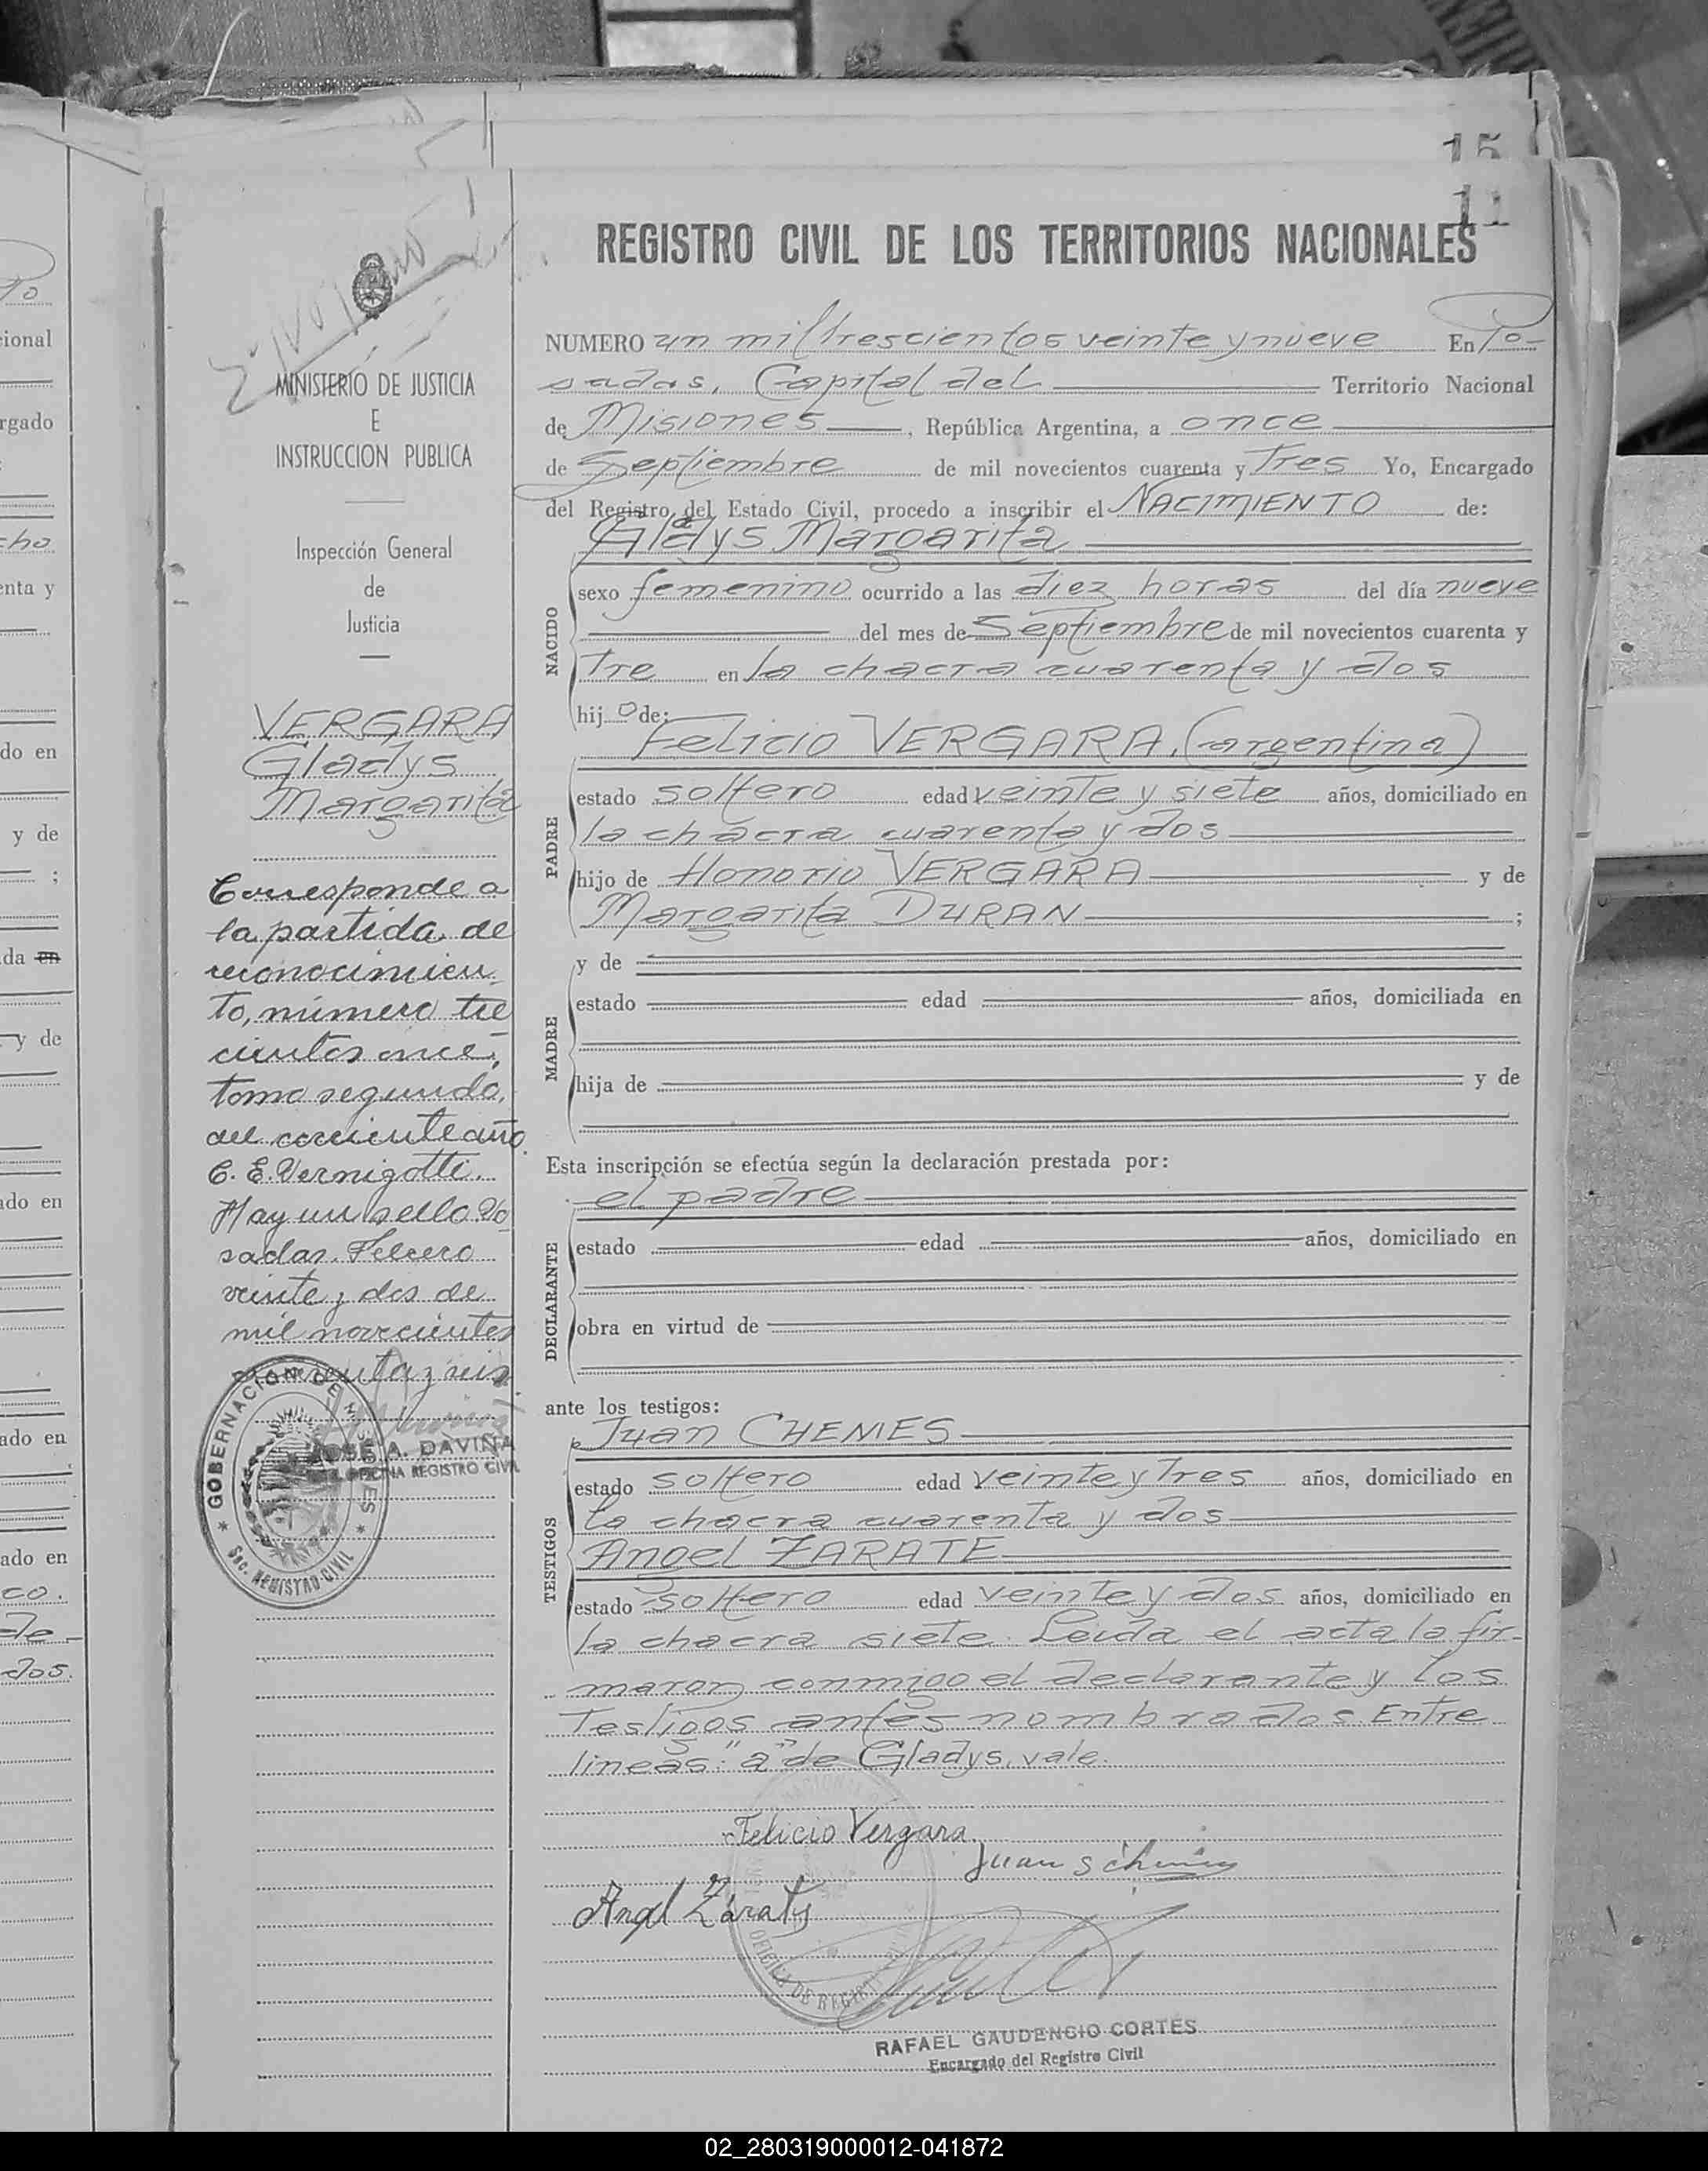 15
11
REGISTRO CIVIL DE LOS TERRITORIOS NACIONALES
NUMERO un mil trescientos veinte y nueve En Po-
sadas, Capital del Territorio Nacional
de Misiones, República Argentina, a once
de Septiembre de mil novecientos cuarenta y Tres Yo, Encargado
del Registro del Estado Civil, procedo a inscribir el NACIMIENTO de:
Gladys Margarita
NACIDO
sexo femenino ocurrido a las diez horas del día nueve
del mes de Septiembre de mil novecientos cuarenta y
Tre en la chacra cuarenta y dos
hij o de:
Felicio VERGARA, (argentina)
PADRE
estado soltero edad veinte y siete años, domiciliado en
la chacra cuarenta y dos
hijo de Honorio VERGARA y de
Margarita DURAN ;
y de
MADRE
estado edad años, domiciliada en
hija de y de
Esta inscripción se efectúa según la declaración prestada por:
el padre
DECLARANTE
estado edad años, domiciliado en
obra en virtud de
ante los testigos:
Juan CHEMES
TESTIGOS
estado soltero edad veinte y Tres años, domiciliado en
la chacra cuarenta y dos
Angel ZARATE
estado soltero edad veinte y dos años, domiciliado en
la chacra siete. Leida el acta la fir-
maron conmigo el declarante y los
Testigos antes nombrados Entre
lineas: "a" de Gladys, vale.
Felicio Vergara
Juan
Angel Zárate
RAFAEL GAUDENCIO CORTES
Encargado del Registro Civil
MINISTERIO DE JUSTICIA
E
INSTRUCCION PUBLICA
Inspección General
de
Justicia
VERGARA
Gladys
Margarita
Corresponde a
la partida de
reconocimien
to, número tre
cientos once,
tomo segundo,
del corriente año.
C. E. Vernigotti.
Hay un sello. Po
sadas, Febrero
veinte y dos de
mil novecientos
cuarenta y seis.
JOSÉ A. DAVIÑA
OFICINA REGISTRO CIVIL
GOBERNACION DE MISIONES
Sec. REGISTRO CIVIL
ional
rgado
cho
enta y
do en
y de
;
da en
y de
ado en
ado en
ado en
co.
de
dos.
02_280319000012-041872